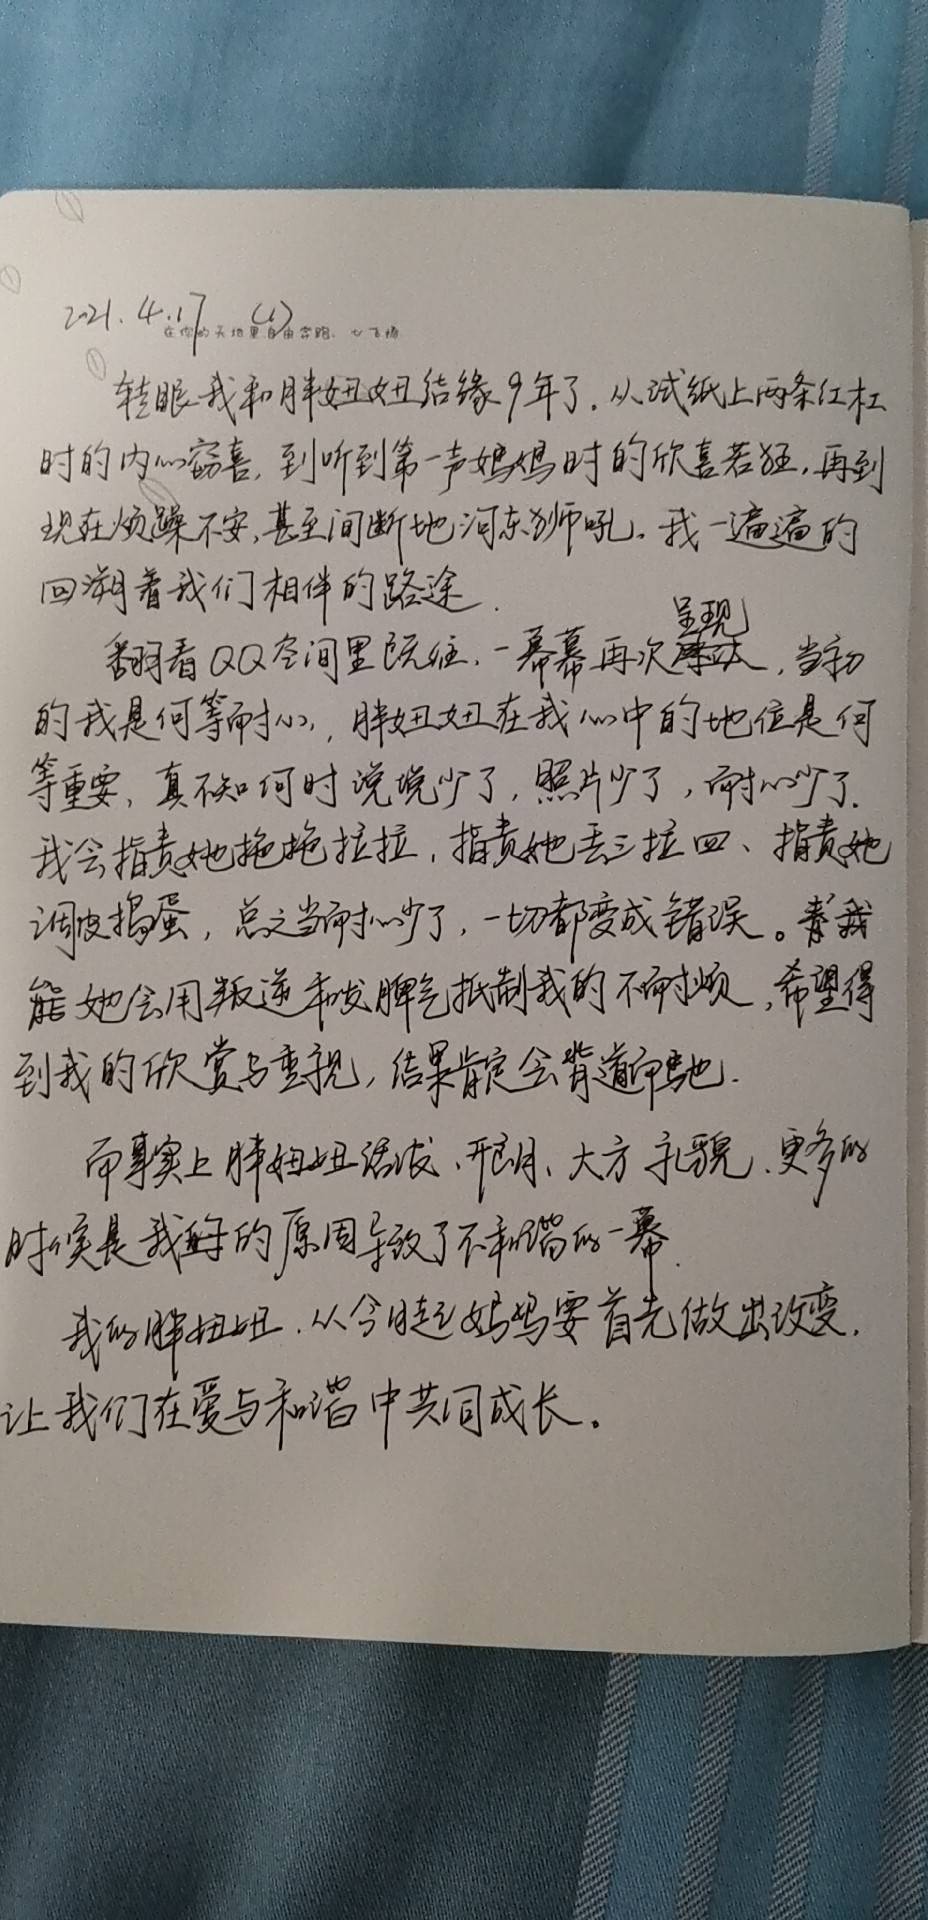 2021.4.17 (1)
在你的天地里自由奔跑
转眼我和胖妞妞结缘9年了.从试纸上两条红杠
时的内心窃喜,到听到第一声妈妈时的欣喜若狂,再到
现在烦躁不安,甚至间断地河东狮吼。我一遍遍的
回溯着我们相伴的路途.
翻看QQ空间里既往,一幕幕再次呈现,当初
的我是何等耐心,胖妞妞在我心中的地位是何
等重要,真不知何时说说少了,照片少了,耐心少了.
我会指责她拖拖拉拉,指责她丢三拉四、指责她
调皮捣蛋,总之当耐心少了,一切都变成错误。
她会用叛逆和发脾气抵制我的不耐烦,希望得
到我的欣赏与重视,结果肯定会背道而驰.
而事实上胖妞妞活泼、开朗、大方礼貌、更多的
时候是我的原因导致了不和谐的一幕.
我的胖妞妞.从今日起妈妈要首先做出改变,
让我们在爱与和谐中共同成长。